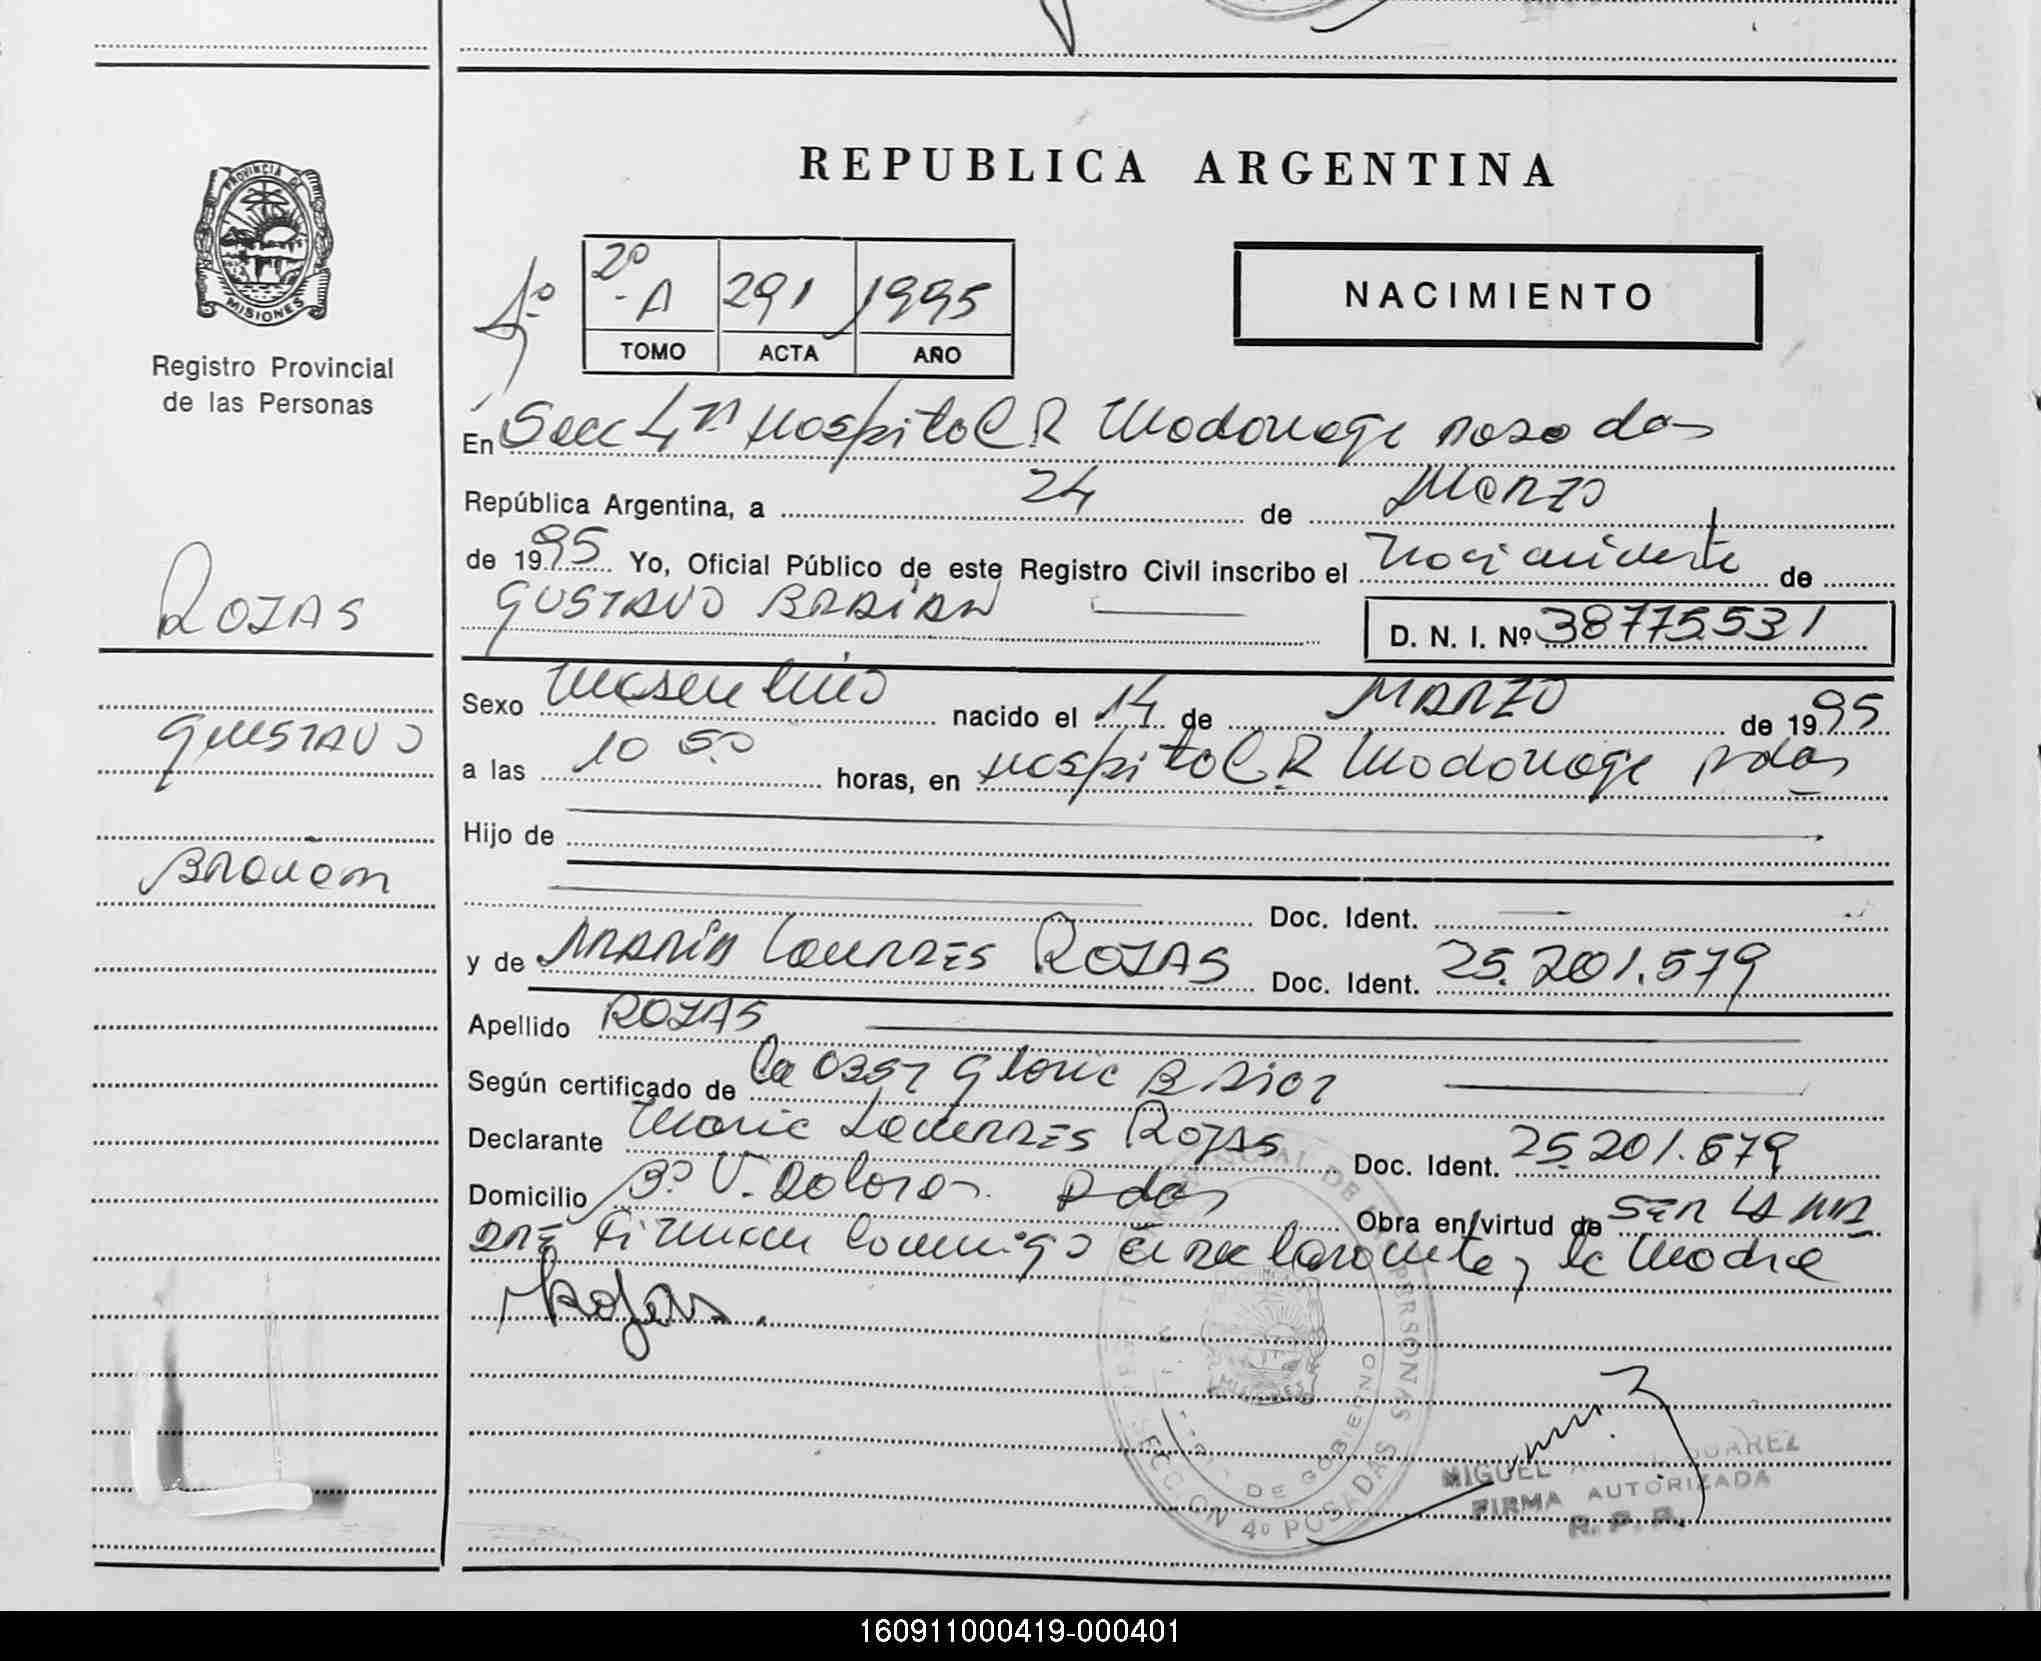 REPUBLICA ARGENTINA
PROVINCIA DE
MISIONES
Registro Provincial
de las Personas
2º
- A 291 1995
TOMO ACTA AÑO
NACIMIENTO
En Secc 4ª Hospital R Madariaga Posadas
República Argentina, a 24 de Marzo
de 1995 Yo, Oficial Público de este Registro Civil inscribo el Nacimiento de
GUSTAVO BRAIAN D. N. I. Nº 38775531
ROJAS
GUSTAVO
Braian
Sexo Masculino nacido el 14 de MARZO de 1995
a las 10 50 horas, en Hospital R Madariaga Pdas
Hijo de
Doc. Ident.
y de MARIA LOURDES ROJAS Doc. Ident. 25.201.579
Apellido ROJAS
Según certificado de la Obst Gloria
Declarante Maria LOURDES ROJAS Doc. Ident. 25.201.579
Domicilio Bº V. Dolores Pdas Obra en virtud de SER LA MA
DRE Firman conmigo el declarante y la Madre
Rojas.
DE LAS PERSONAS
MISIONES
DE GOBIERNO
SECCION 4º POSADAS
MIGUEL SUAREZ
FIRMA AUTORIZADA
R. P. P.
160911000419-000401